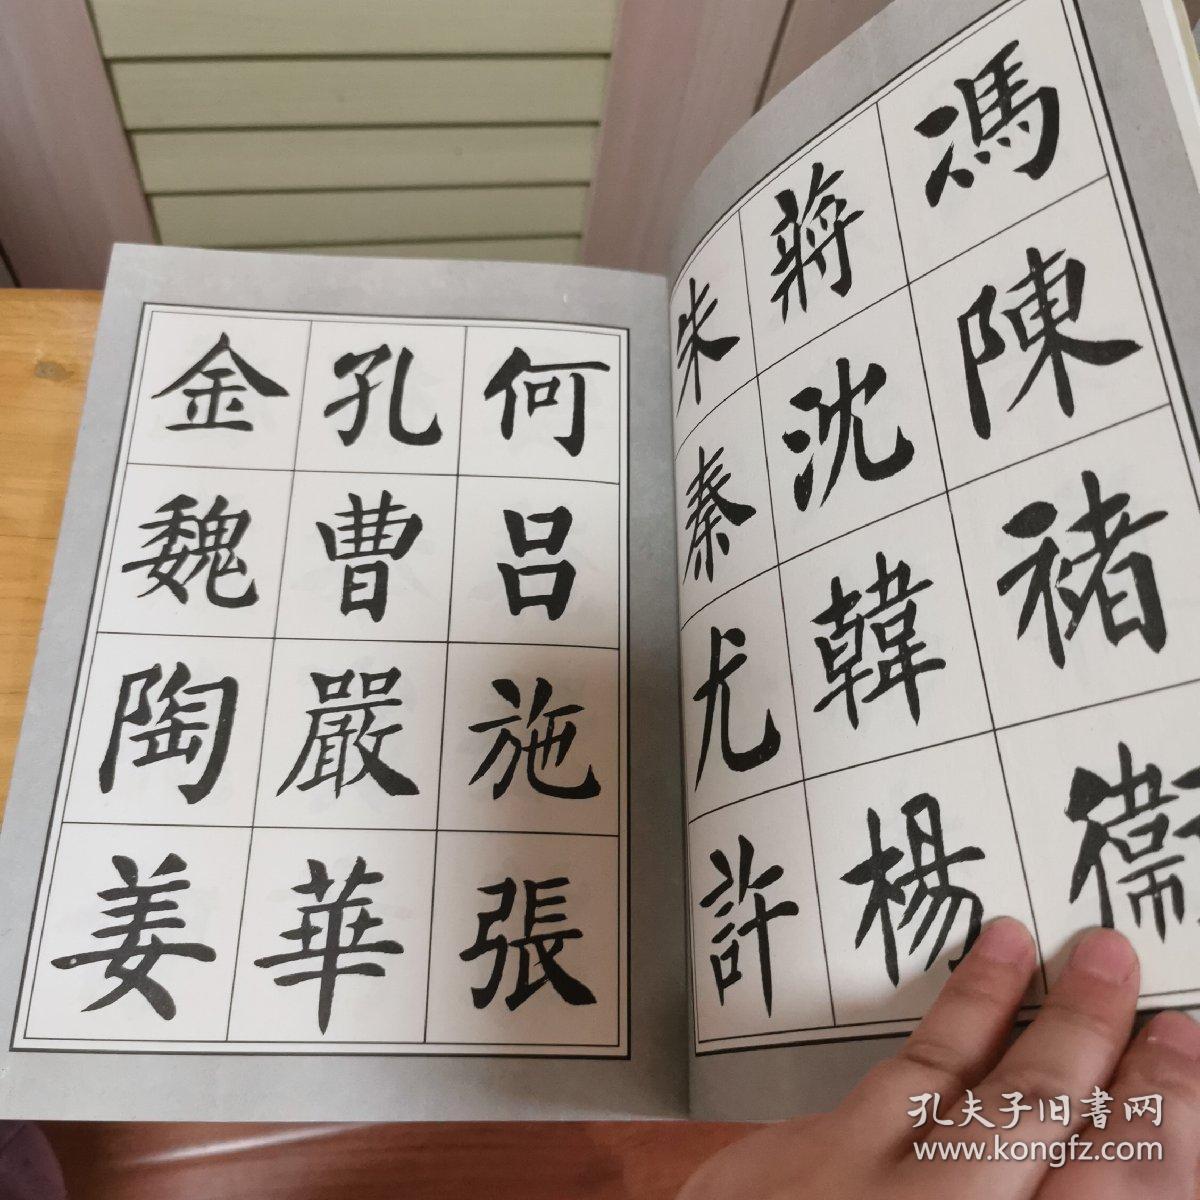 馮陳褚衛
蔣沈韓楊
朱秦尤許
何吕施張
孔曹嚴華
金魏陶姜
孔夫子旧書网
www.kongfz.com